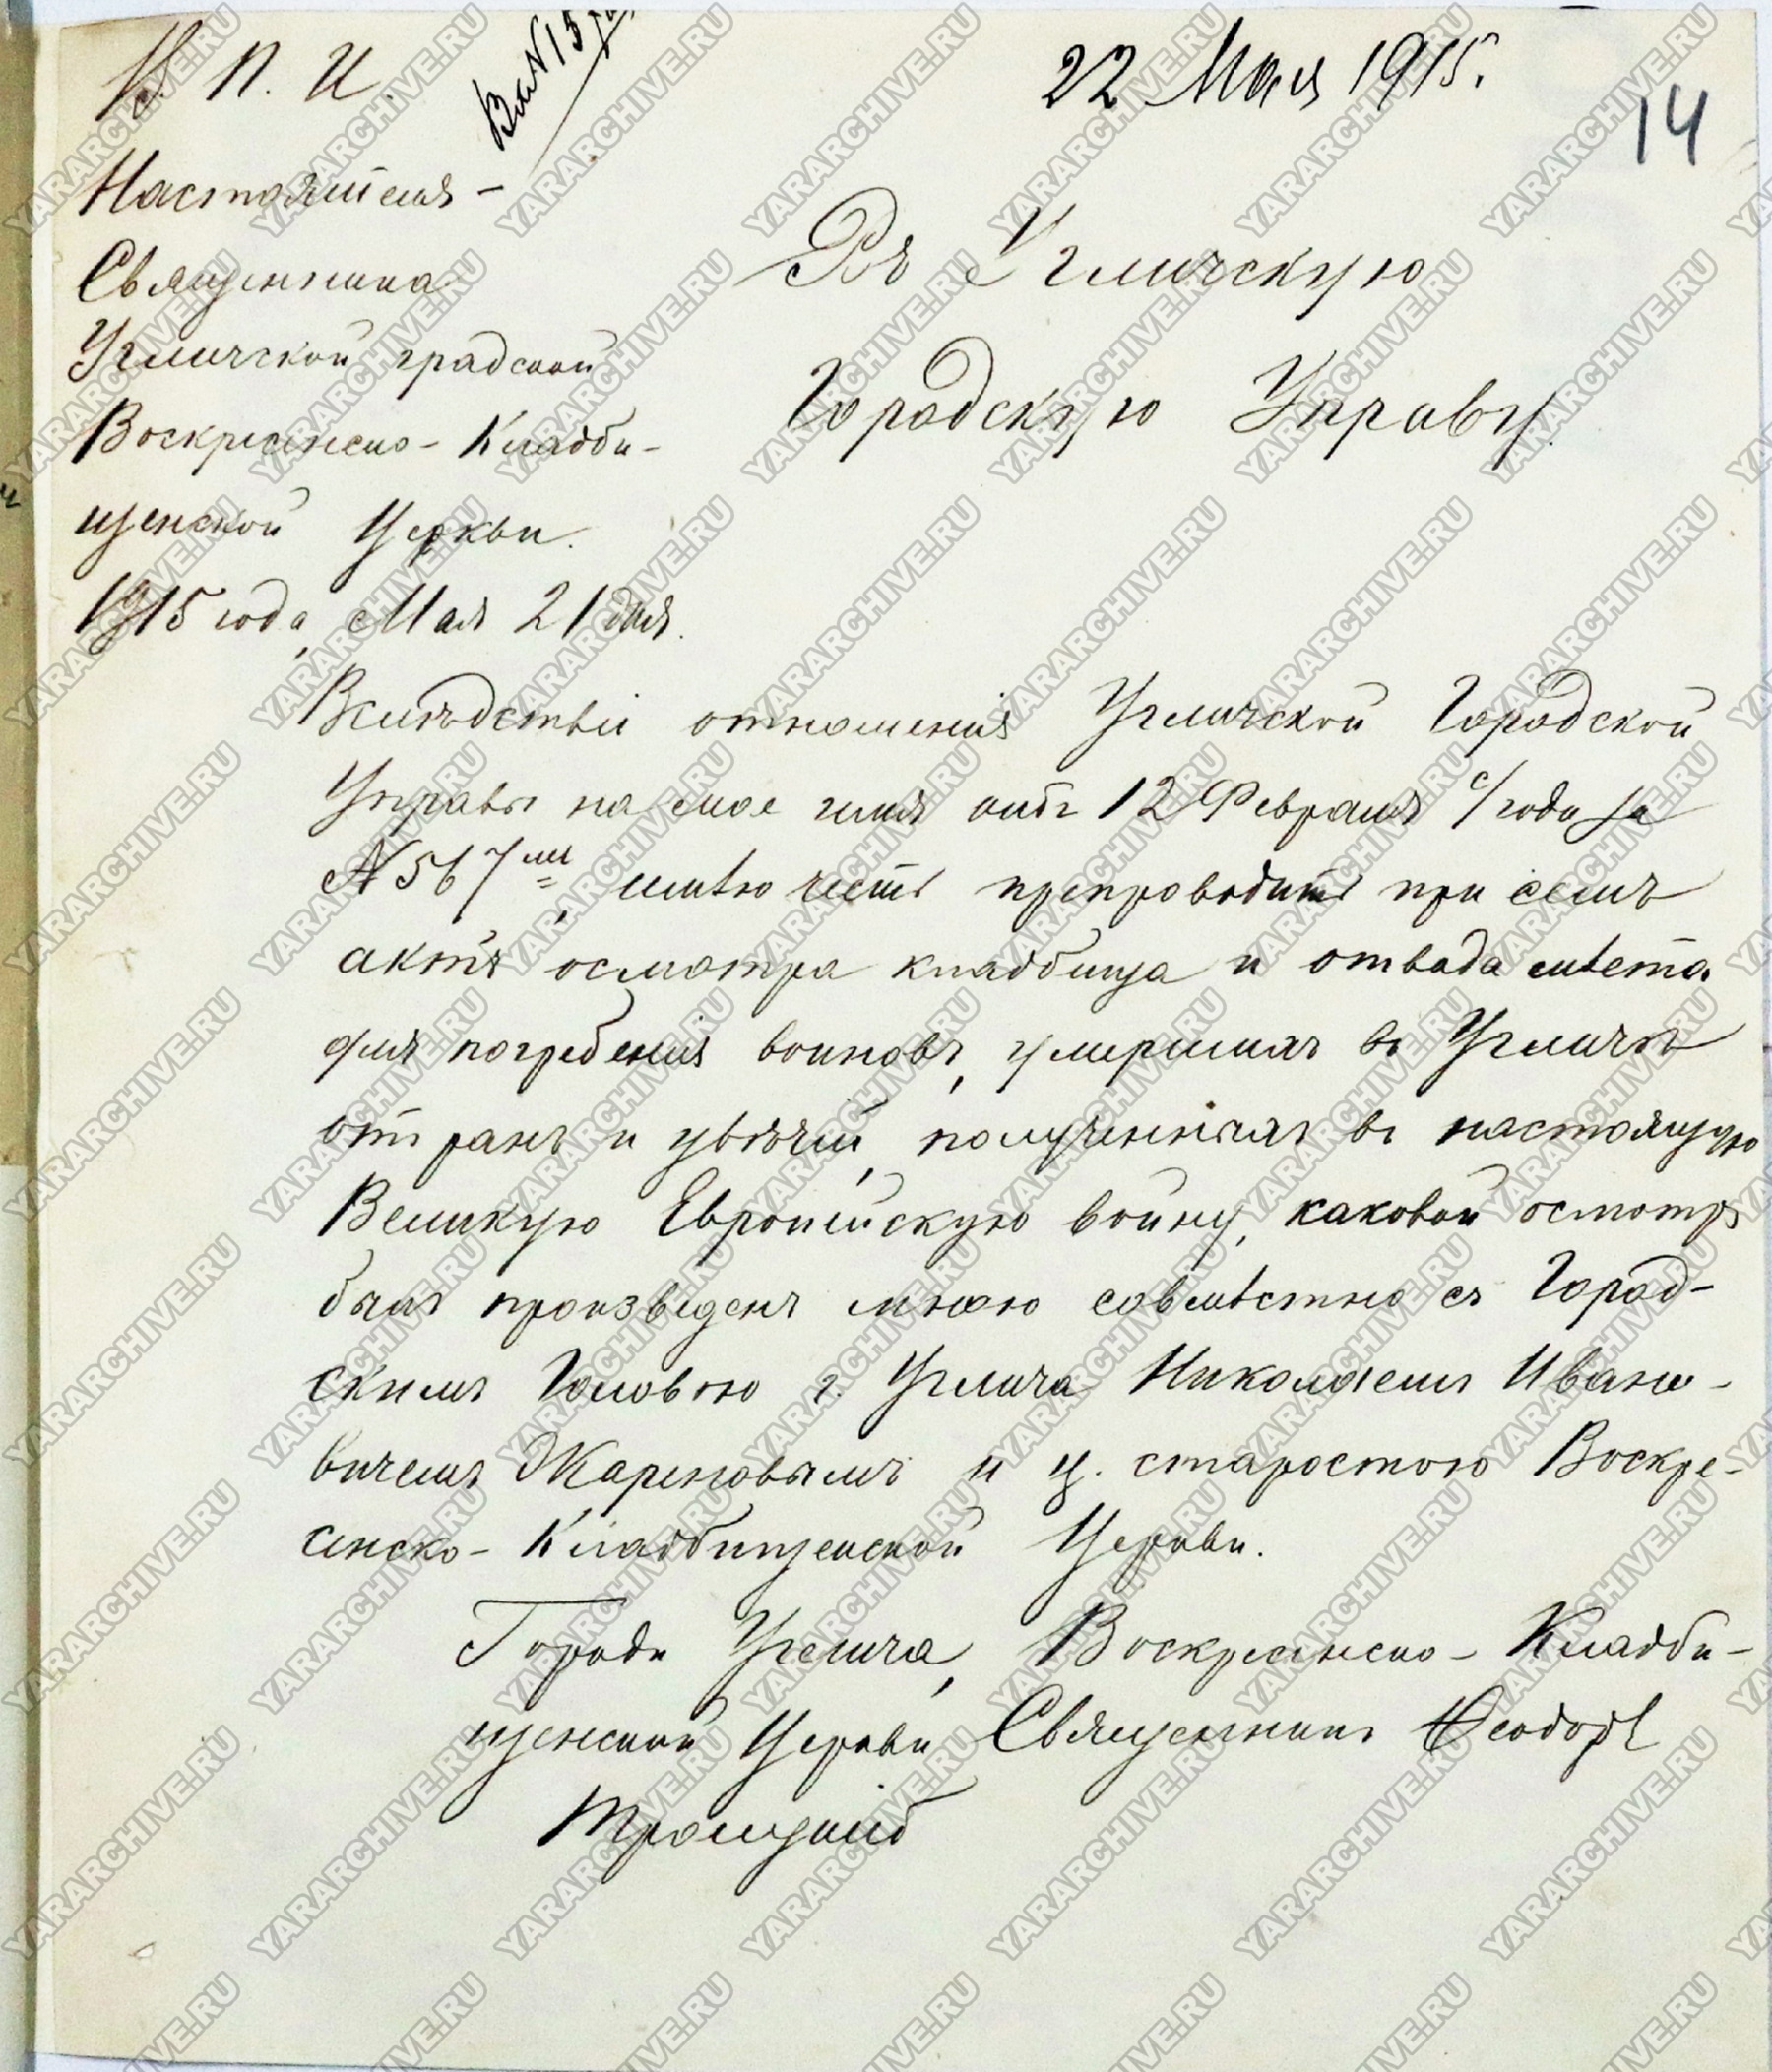 М. П. И.
Вх N 15
22 Мая 1915.
14
Настоятеля-
Священника
Угличской градской
Воскресенско-Кладби-
щенской Церкви.
1915 года, Мая 21 дня.
Въ Угличскую
Городскую Управу.
Вслѣдствіи отношенія Угличской Городской
Управы на мое имя отъ 12 Февраля с/года за
N 567мъ, имѣю честь препроводить при семъ
актъ осмотра кладбища и отвода мѣста
для погребенія воиновъ, умершихъ въ Угличѣ
отъ ранъ и увѣчій, полученныхъ въ настоящую
Великую Европейскую войну, каковой осмотръ
былъ произведенъ мною совмѣстно съ Город-
скимъ Головою г. Углича Николаемъ Ивано-
вичемъ Жареновымъ и ц. старостою Воскре-
сенско-Кладбищенской Церкви.
Города Углича, Воскресенско-Кладби-
щенской Церкви Священникъ Ѳеодоръ
Троицкій
YARARCHIVE.RU